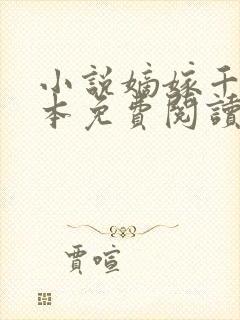 小說嫡嫁千
本免費閱讀
賈喧